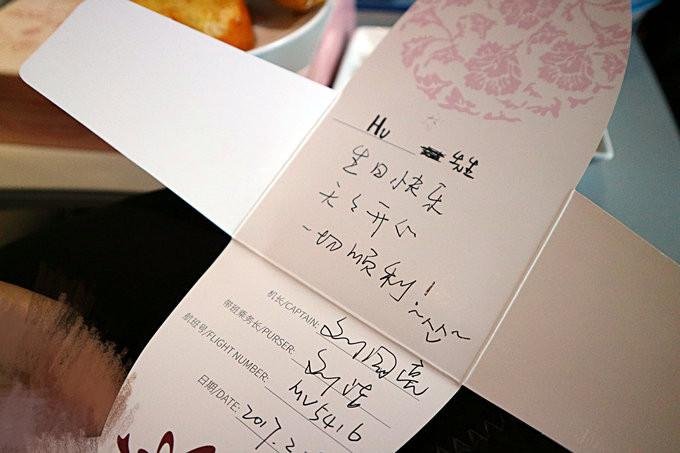 Hu 先生
生日快乐
天天开心
一切顺利!
机长/CAPTAIN: 刘国亮
带班乘务长/PURSER: 刘洁
航班号/FLIGHT NUMBER: MU5416
日期/DATE: 2017.2